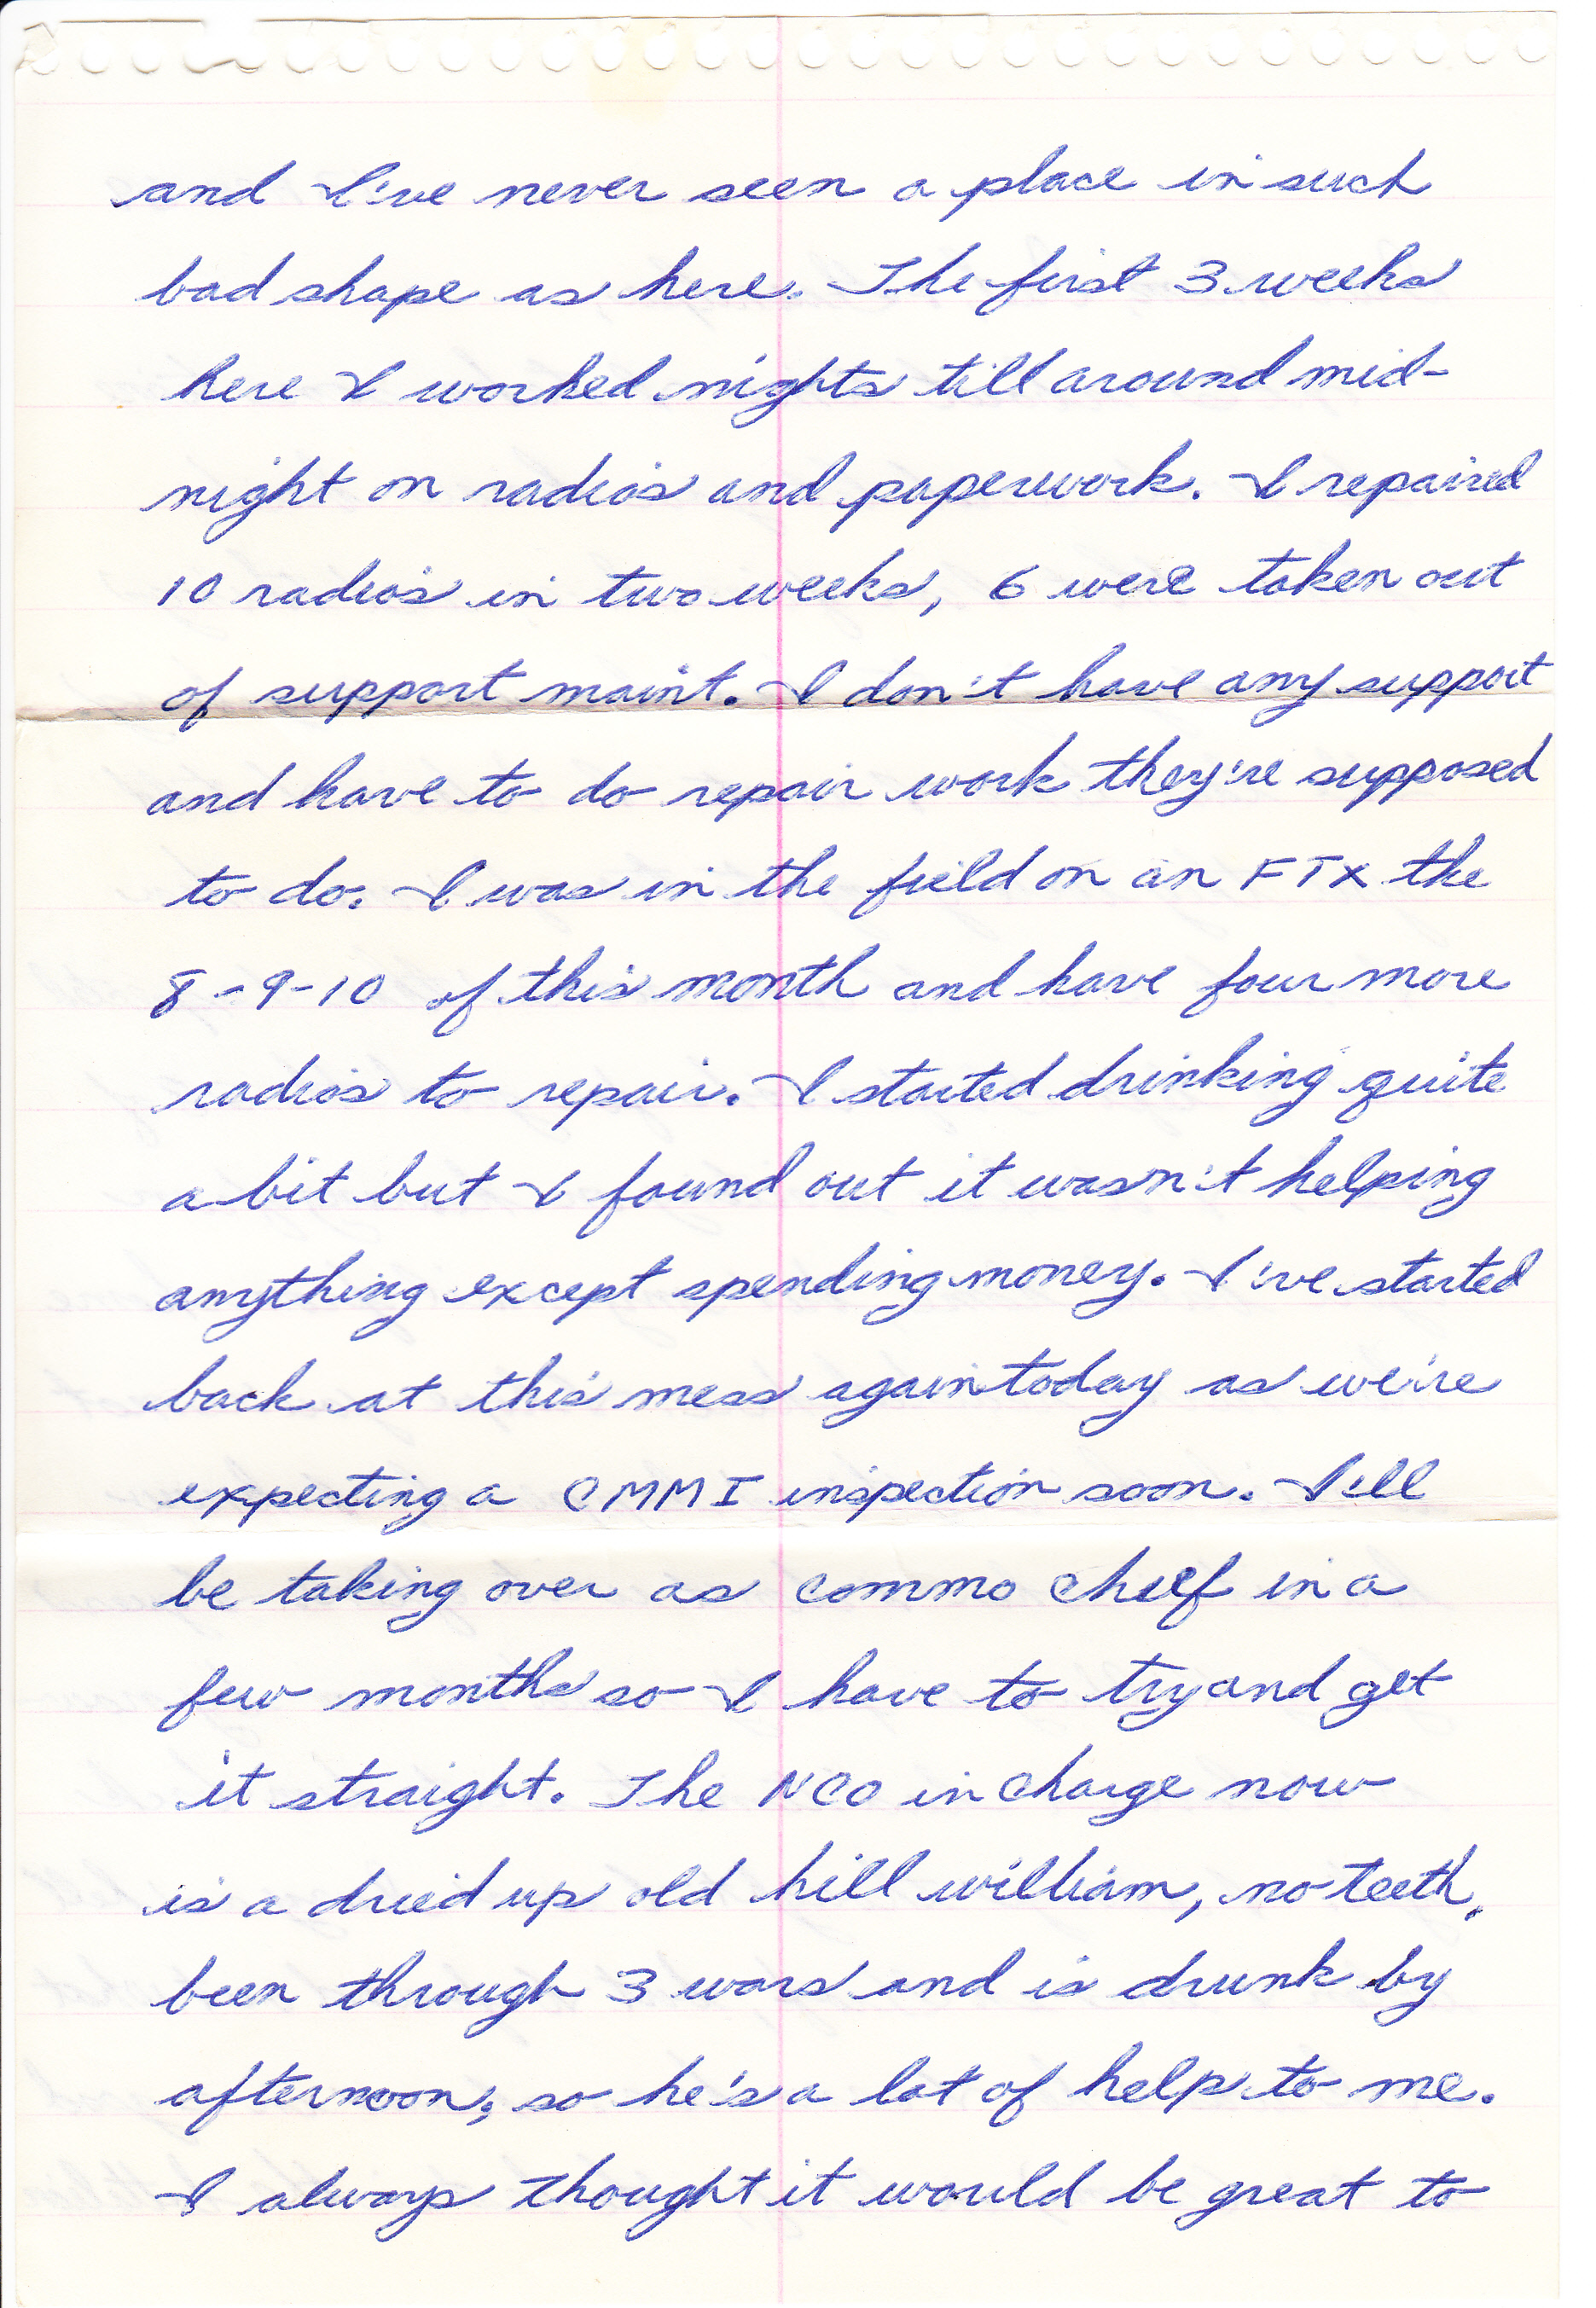 and I've never seen a place in such
bad shape as here. The first 3 weeks
here I worked nights till around mid-
night on radios and paperwork. I repaired
10 radios in two weeks, 6 were taken out
of support maint. I don't have any support
and have to do repair work they're supposed
to do. I was in the field on an FTX the
8-9-10 of this month and have four more
radios to repair. I started drinking quite
a bit but I found out it wasn't helping
anything except spending money. I've started
back at this mess again today as we're
expecting a CMMI inspection soon. I'll
be taking over as commo chief in a
few months so I have to try and get
it straight. The NCO in charge now
is a dried up old hill william, no teeth,
been through 3 wars and is drunk by
afternoon, so he's a lot of help to me.
I always thought it would be great to